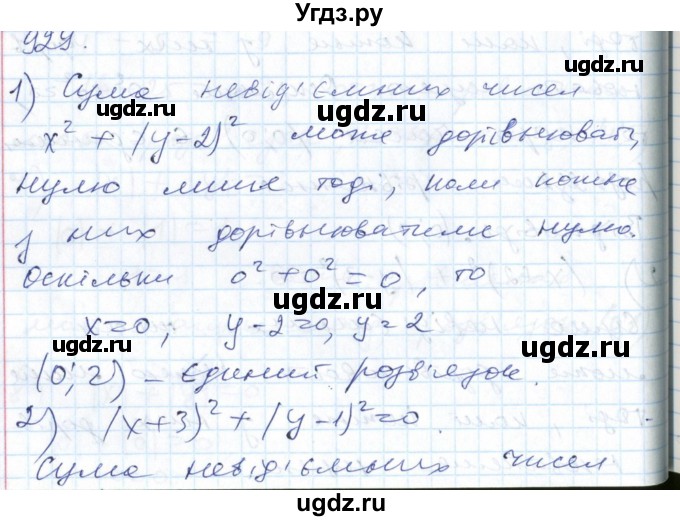 Угдз.ру
929.
1) Сума невід'ємних чисел
ugdz.ru ugdz.ru
x² + (y-2)² може дорівнювати
нулю лише тоді, коли кожне
ugdz.ru
з них дорівнюватиме нулю.
ugdz.ru ugdz.ru
Оскільки 0²+0²=0, то
x=0, y-2=0, y=2
ugdz.ru
(0; 2) – єдиний розв'язок.
ugdz.ru ugdz.ru
2) (x+3)²+(y-1)²=0.
Сума невід'ємних чисел
ugdz.ru